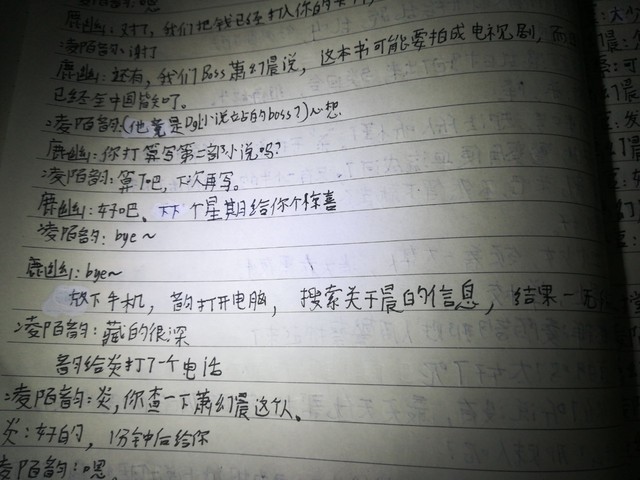 鹿幽幻:对了,我们把钱已经打入你的
凌陌韵:谢了
鹿幽幻:还有,我们Boss萧幻晨说,这本书可能要拍成电视剧,而
已经全中国皆知了。
凌陌韵:(他竟是Dgl小说站的boss?)心想
鹿幽幻:你打算写第二部小说吗?
凌陌韵:算了吧,下次再写。
鹿幽幻:好吧、下个星期给你个惊喜
凌陌韵:bye~
鹿幽幻:bye~
放下手机,韵打开电脑,搜索关于晨的信息,结果一无
凌陌韵:藏的很深
韵给炎打了一个电话
凌陌韵:炎,你查一下萧幻晨这个人。
炎:好的,1分钟后给你
凌陌韵:嗯。